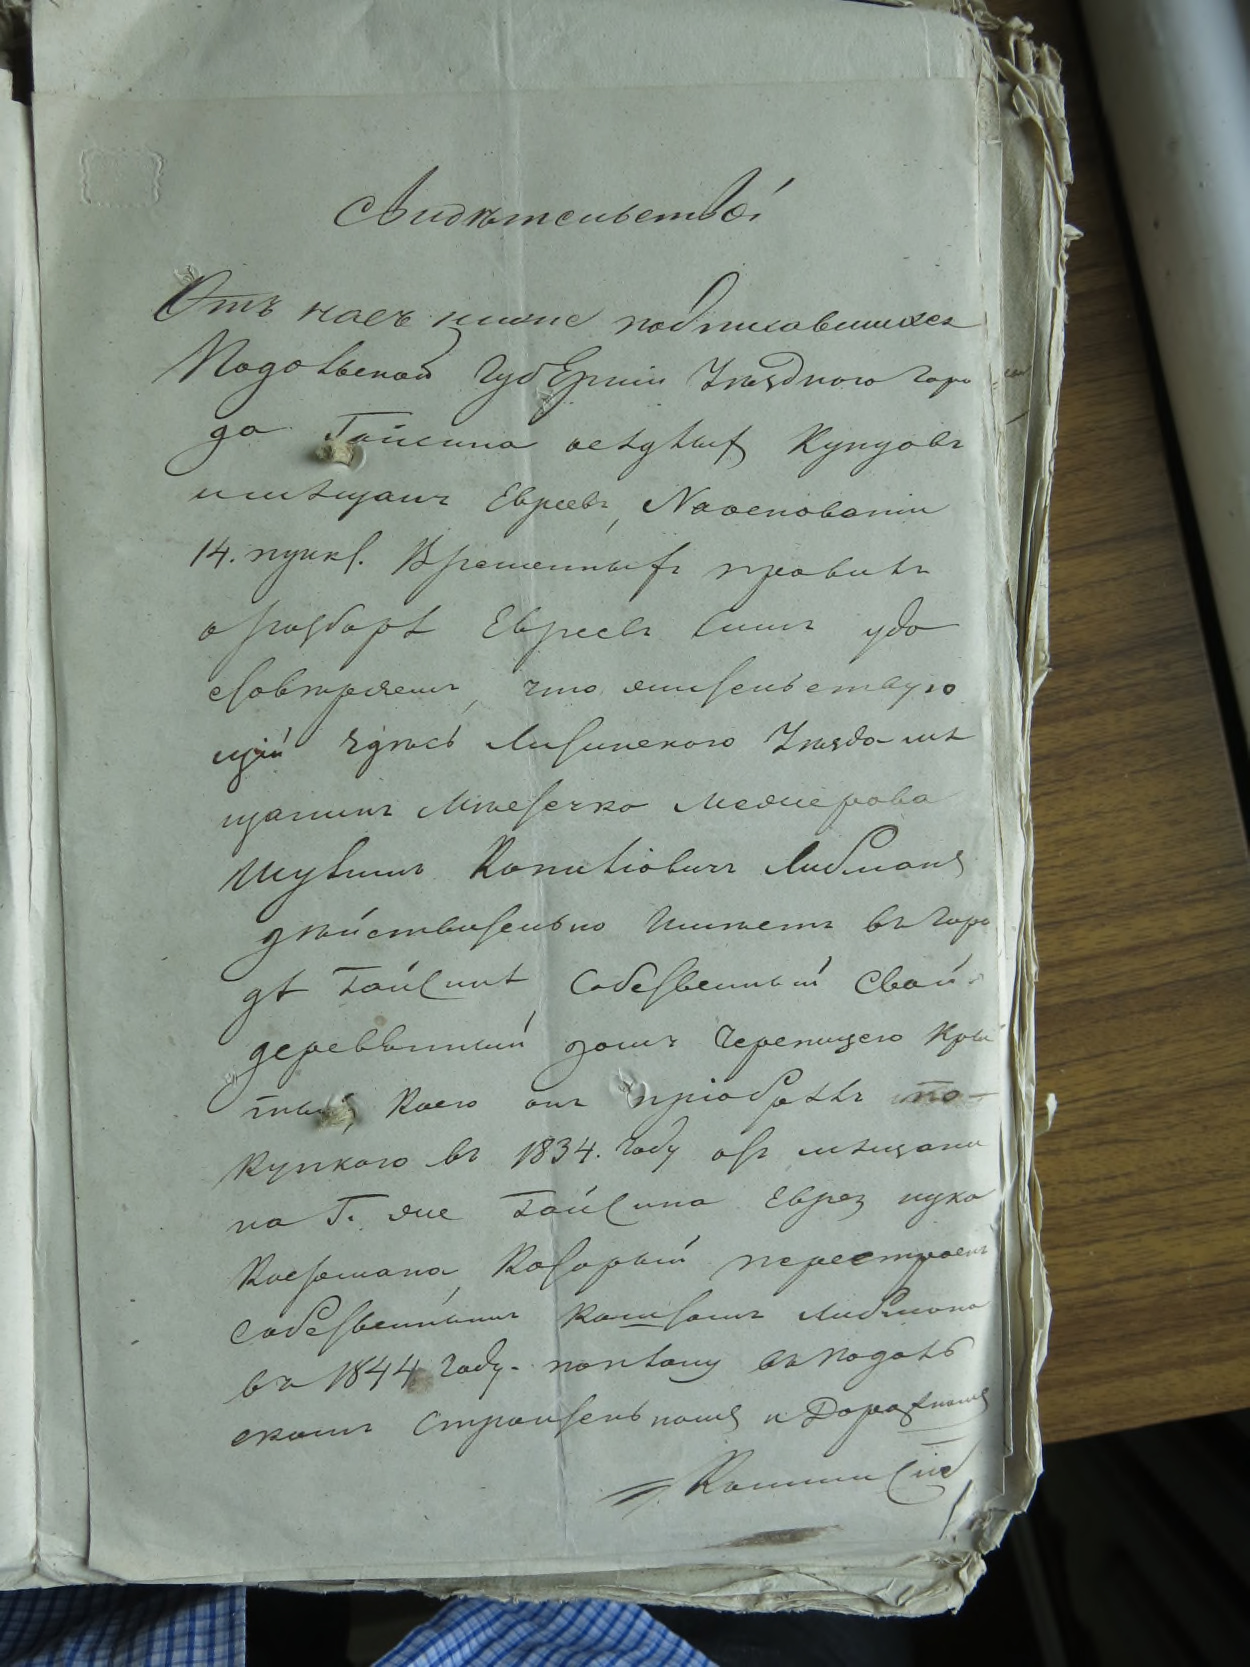 Свидѣтельство
Отъ насъ ниже подписавшихся
Подольской Губерніи Уѣзднаго горо
да Гайсина осѣдлыхъ Купцовъ
имѣщанъ Евреевъ, Наоснованіи
14. пункт. Временныхъ правилъ
о разборѣ Евреевъ симъ удо
стовѣряемъ, что жительствую
щій здѣсь Литинского Уѣзда мѣ
щанинъ Мѣстечка Меджерова
Шулимъ Копелiовичъ Либманъ
дѣйствительно Имѣетъ въ горо
дѣ Гайсинѣ Собственный Свой
деревянный домъ Черепицею Кры
тый, Коего онъ пріобрѣлъ по-
купкою въ 1834. году отъ мѣщани
на Г. же Гайсина Еврея
который перестроенъ
собственнымъ Коштомъ Либмана
въ 1844 году. поплану въ Подоль
скомъ Строительной и Дорожной
Коммисіи